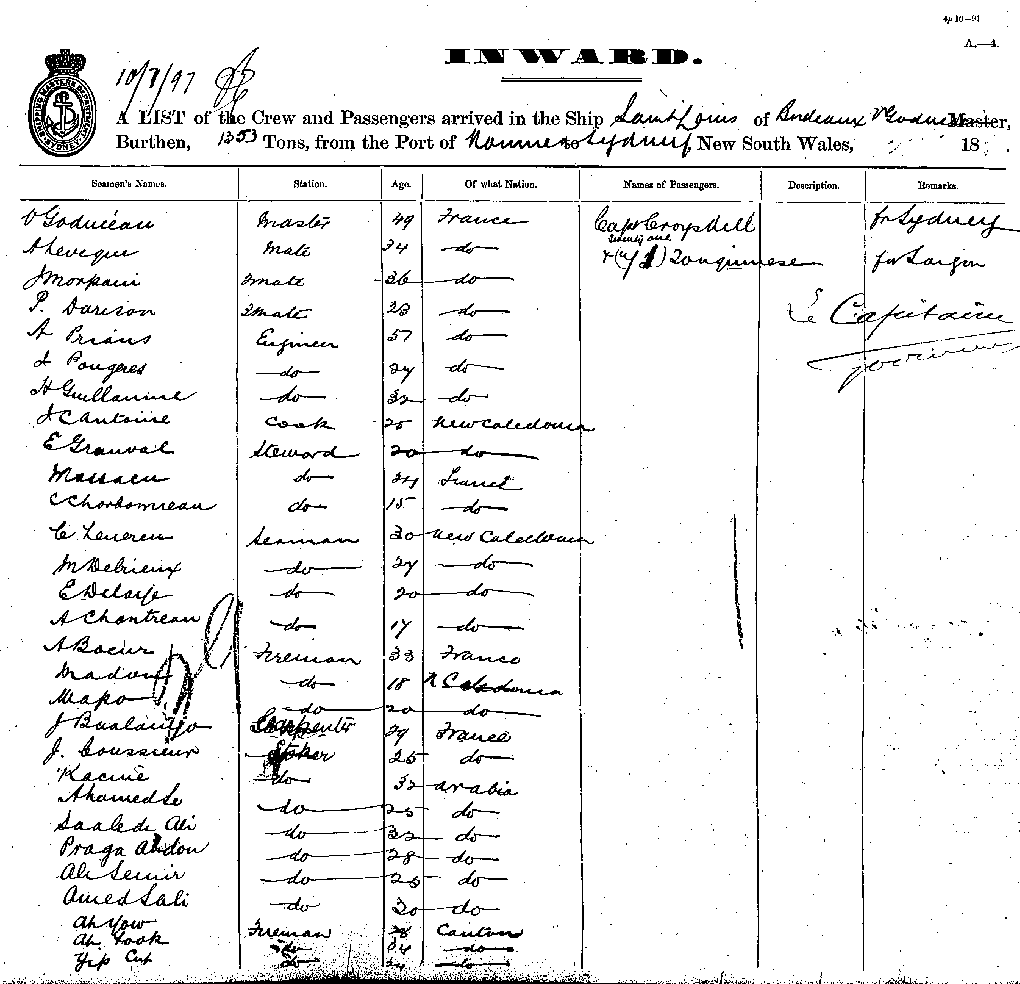 4p 10-91
A.—4.
INWARD.
10/7/97
A LIST of the Crew and Passengers arrived in the Ship Saint Louis of Bordeaux V Goduceau Master,
Burthen, 1353 Tons, from the Port of Noumea to Sydney New South Wales, 18
Seamen's Names. Station. Age. Of what Nation. Names of Passengers. Description. Remarks.
V Goduceau Master 49 France Capt Croyshill for Sydney
twenty one
A Leveque Mate 34 do + (21) Tonquinese for Saigon
J Morpain 2mate 36 do
P. Darison 3mate 23 do Le Capitaine
A Prians Engineer 57 do
J Pougeres do 24 do
H Guillamine do 32 do
J C Antoine Cook 25 New Caledonia
E Granval Steward 20 do
Massaeu do 24 France
C Chorbonneau do 15 do
C Leveren Seaman 30 New Caledonia
M Debrieux do 27 do
E Deloije do 20 do
A Chantreau do 17 do
A Bocur Fireman 33 France
Madou do 18 N Caledonia
Mapo do 20 do
J Baalanijo Carpenter 29 France
J. Coussieur Stoker 25 do
Kacine do 32 Arabia
Ahamed Se do 25 do
Saalede Ali do 32 do
Praga Abdou do 28 do
Ali Semir do 25 do
Amed Sali do 30 do
Ah Yow Fireman 38 Canton
Ah Took do 34 do
Yip Cup do 24 do